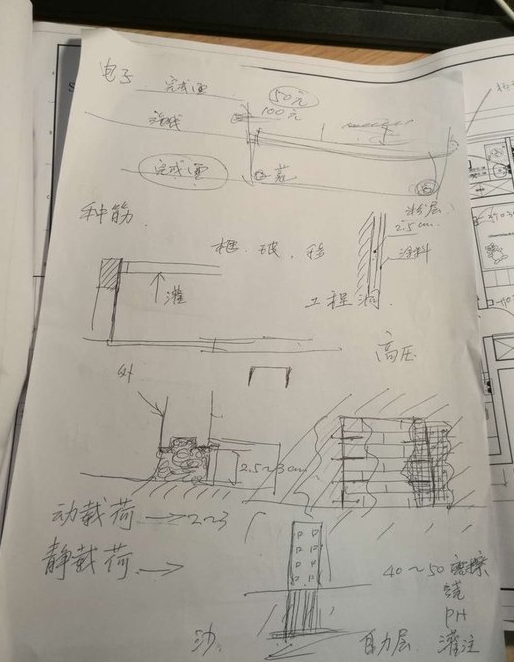 电子
完成面
50元
100元
完成面
种筋
2.5cm
涂料
灌
工程洞
高压
外
2.5~3cm
动载荷 → 2~3
静载荷 →
40~50 摩擦
PH
沙
自力层 灌注